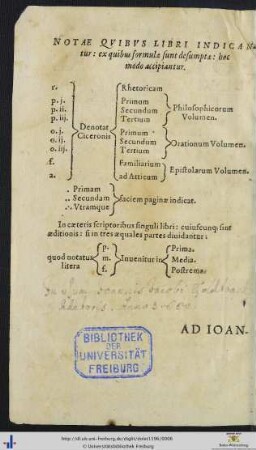 NOTAE QVIBVS LIBRI INDICAN
tur: ex quibus formulæ sunt desumptæ: hoc
modo accipiantur.
r. Rhetoricam
p.j. Primum
p.ij. Secundum Philosophicorum
p.iij. Tertium Volumen.
Denotat
Ciceronis
o.j. Primum
o.ij. Secundum Orationum Volumen.
o.iij. Tertium
f. Familiarium
a. ad Atticum Epistolarum Volumen.
. Primam
.. Secundam faciem paginæ indicat.
∴ Vtramque
In cæteris scriptoribus singuli libri: cuiuscunq; sint
æditionis: si in tres æquales partes diuidantur:
quod notatur litera
p. Prima.
m. Inuenitur in Media.
f. Postrema.
BIBLIOTHEK
DER
UNIVERSITÄT
FREIBURG
AD IOAN.
© Universitätsbibliothek Freiburg